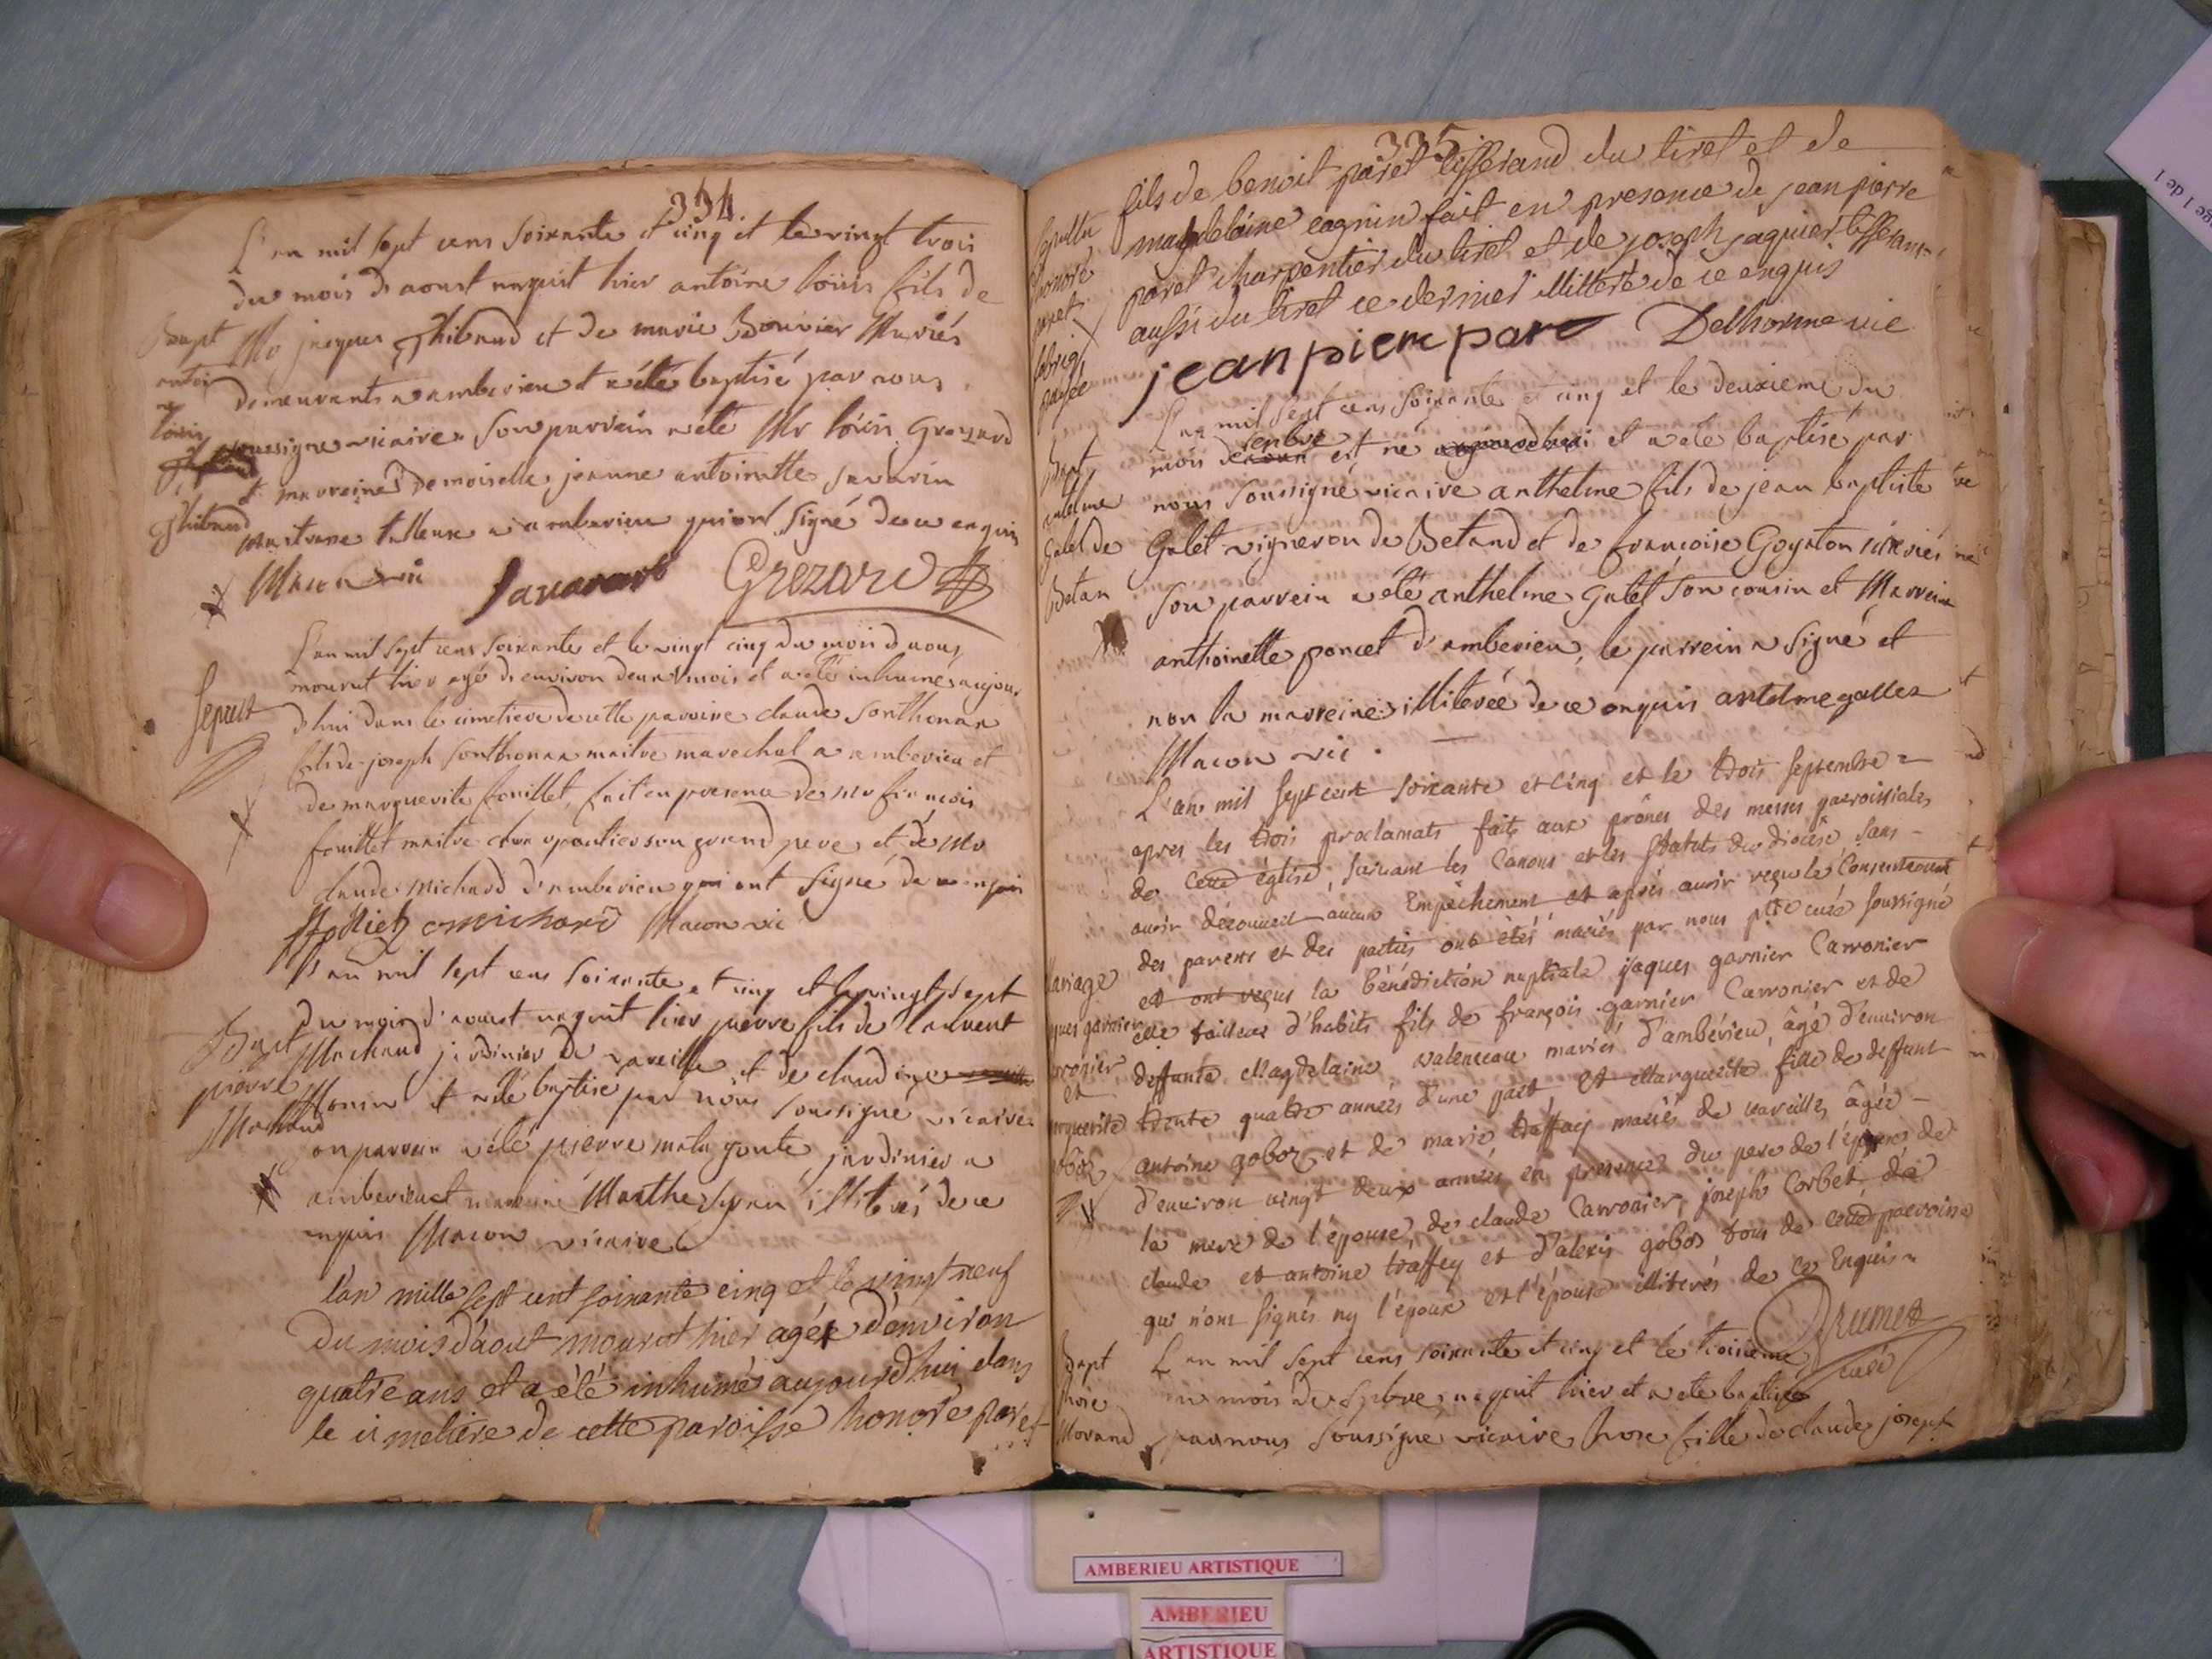 334
L'an mil sept cens soixante et cinq et le vingt trois
du mois d'aoust naquit hier antoine loüis fils de
Mr jacques Thibaud et de marie Bouvier Mariés
demeurants a amberieu et a été baptisé par nous
soussigné vicaire Son parrain a été Mr loüis Grezard
et marreine Demoiselle jeanne antoinette Savarin
tailleuse a amberieu qui ont signé de ce enquis
Bapt
antoi
ne
loüis
Thibaud
Macon vic
Savarin
Grezard
L'an mil sept cens soixante et le vingt cinq du mois d'aoust
mourut hier agé d'environ deux mois et a été inhumé aujour
d'hui dans le cimetiere de cette paroisse claude Sonthonax
fils de joseph Sonthonax maitre marechal a amberieu et
de marguerite fouillet, fait en presence de Mr françois
fouillet maitre charpantier son grand pere et de Mr
claude Michard d'amberieu qui ont signé de ce enquis
Sepult
cmichard Macon vic
L'an mil sept cens soixante et cinq et le vingt sept
du mois d'aoust naquit hier pierre fils de laurent
Machaud jardinier de vareille et de claudine
Monin et a été baptisé par nous soussigné vicaire
son parrein a été pierre matagonte jardinier a
amberieu et marreine Marthe illiterés de ce
enquis Macon vicaire
Bapt
pierre
Machaud
l'an mille sept cent soixante cinq et le vingt neuf
du mois d'aout mourut hier agée d'environ
quatre ans et a été inhumé aujourdhui dans
le cimetiere de cette paroisse honoré paret
335
fils de benoit paret tisserand du tiret et de
magdelaine cagnin fait en presence de jean pierre
paret charpentier du tiret et de joseph jaquier tisserant
aussi du tiret ce dernier illitteré de ce enquis
Sepultu
honoré
paret
fabriq
payée
jean piere pare Delhorme vic
L'an mil sept cens soixante et cinq et le deuxieme du
mois est né et a été baptisé par
nous soussigné vicaire anthelme fils de jean baptiste
Galet vigneron de Betand et de francoise Goyaton mariés
Son parrein a été anthelme Galet son cousin et Marreine
anthoinette poncet d'amberieu, le parrein a signé et
non la marreine illiterée de ce enquis antelme gallet
Macon vic.
Bapt
antelme
Galet de
Betan
L'an mil sept cent soixante et cinq et le trois septembre
apres les trois proclamats faits aux prônes des messes parroissiales
de cette église, suivant les Canons et les statuts du diocêse, sans
avoir découvert aucun Empêchement et aprés avoir reçu le Consentement
des parens et des parties ont étés mariés par nous ptre curé soussigné
et ont reçus la bénédiction nuptiale jaques garnier Carronier
tailleur d'habits fils de françois garnier Carronier et de
deffunte Magdelaine valenceau mariés d'ambérieu, âgé d'environ
trente quatre années d'une part, et Marguerite fille de deffunt
antoine goboz et de marie traffay mariés de vareilles, âgée
d'environ vingt deux années, en presence du pere de l'époux de
la mere de l'épouse, de claude Carronier, joseph Corbet, de
claude et antoine traffey et d'alexis gobos tous de cette parroisse
qui n'ont signés ny l'époux et l'épouse illiterés de ce Enquis
Mariage
jaques garnier
carronier
et
marguerite
goboz
Brumet
curé
L'an mil sept cens soixante et cinq et le troisieme
du mois de 7bre naquit hier et a été baptisée
par nous soussigné vicaire hrose fille de claude joseph
Bapt
hrose
Morand
AMBERIEU ARTISTIQUE
AMBERIEU
ARTISTIQUE